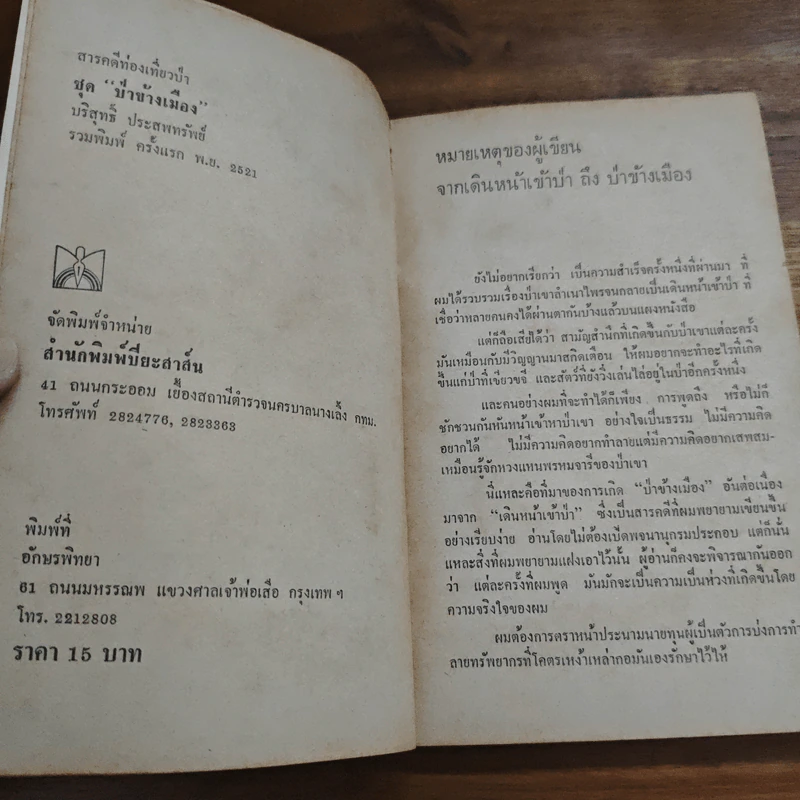 สารคดีท่องเที่ยวป่า
ชุด "ป่าข้างเมือง"
บริสุทธิ์ ประสพทรัพย์
รวมพิมพ์ ครั้งแรก พ.ย. 2521
จัดพิมพ์จำหน่าย
สำนักพิมพ์ปิยะสาส์น
41 ถนนกระออม เยื้องสถานีตำรวจนครบาลนางเลิ้ง กทม.
โทรศัพท์ 2824776, 2823363
พิมพ์ที่
อักษรพิทยา
61 ถนนมหรรณพ แขวงศาลเจ้าพ่อเสือ กรุงเทพ ฯ
โทร. 2212808
ราคา 15 บาท
หมายเหตุของผู้เขียน
จากเดินหน้าเข้าป่า ถึง ป่าข้างเมือง
ยังไม่อยากเรียกว่า เป็นความสำเร็จครั้งหนึ่งที่ผ่านมา ที่
ผมได้รวบรวมเรื่องป่าเขาลำเนาไพรจนกลายเป็นเดินหน้าเข้าป่า ที่
เชื่อว่าหลายคนคงได้ผ่านตากันบ้างแล้วบนแผงหนังสือ
แต่ก็ถือเสียได้ว่า สามัญสำนึกที่เกิดขึ้นกับป่าเขาแต่ละครั้ง
มันเหมือนกับมีวิญญานมาสกิดเตือน ให้ผมอยากจะทำอะไรที่เกิด
ขึ้นแก่ป่าที่เขียวขจี และสัตว์ที่ยังวิ่งเล่นไล่อยู่ในป่าอีกครั้งหนึ่ง
และคนอย่างผมที่จะทำได้ก็เพียง การพูดถึง หรือไม่ก็
ชักชวนกันหันหน้าเข้าหาป่าเขา อย่างใจเป็นธรรม ไม่มีความคิด
อยากได้ ไม่มีความคิดอยากทำลายแต่มีความคิดอยากเสพสม-
เหมือนรู้จักหวงแหนพรหมจารีของป่าเขา
นี่แหละคือที่มาของการเกิด "ป่าข้างเมือง" อันต่อเนื่อง
มาจาก "เดินหน้าเข้าป่า" ซึ่งเป็นสารคดีที่ผมพยายามเขียนขึ้น
อย่างเรียบง่าย อ่านโดยไม่ต้องเปิดพจนานุกรมประกอบ แต่ก็นั่น
แหละสิ่งที่ผมพยายามแฝงเอาไว้นั้น ผู้อ่านก็คงจะพิจารณากันออก
ว่า แต่ละครั้งที่ผมพูด มันมักจะเป็นความเป็นห่วงที่เกิดขึ้นโดย
ความจริงใจของผม
ผมต้องการตราหน้าประนามนายทุนผู้เป็นตัวการบ่งการทำ
ลายทรัพยากรที่โคตรเหง้าเหล่ากอมันเองรักษาไว้ให้